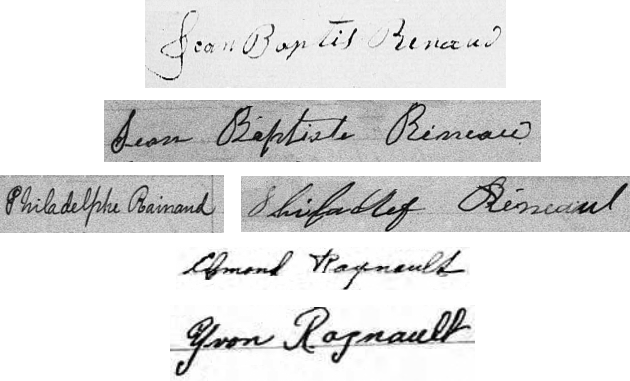 Jean Baptis Renaud
Jean Baptiste Rèneau
Philadelphe Rainaud Rèneaul
Edmond Raynault
Yvon Raynault